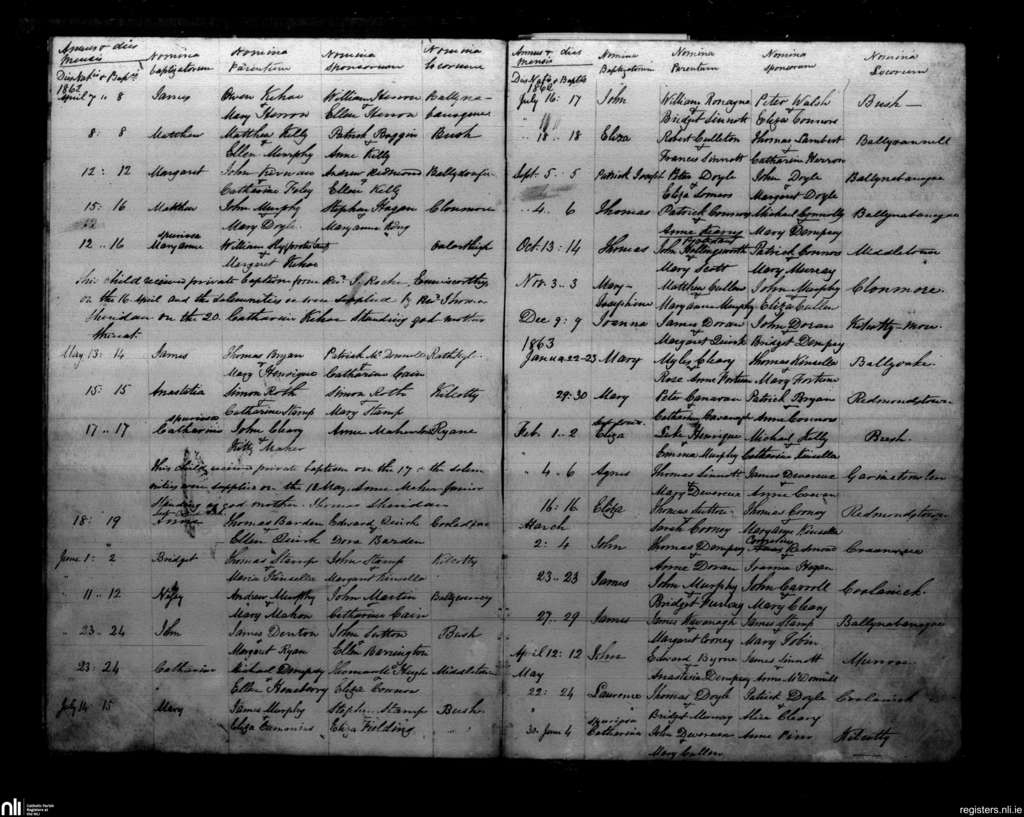 Annus & dies mensis Nomina baptizatorum Nomina Parentum Nomina Sponsorum Nomina Locorum
Dies Nat. & Bapt.
1862
April 7 .. 8 James Owen Kehoe William Herron Ballyna-
& Mary Herron Ellen Herron
8: 8 Matthew Matthew Kelly Patrick Boggin Bush
& Ellen Murphy Anne Kelly
12: 12 Margaret John Andrew Redmond
Catharine Foley Ellen Kelly
15: 16 Matthew John Murphy Stephen Hagan Clonmore
& Mary Doyle Mary anne King
spurious
12 .. 16 Mary anne William
& Margaret Kehoe
This child received private baptism from Revd. J. Roche Enniscorthy
on the 16 April and the solemnities were supplied by Revd Thomas
Sheridan on the 20. Catharine Kehoe standing god mother
thereat.
May 13: 14 James Thomas Bryan Patrick McDonnell
& Mary Henrique Catharine Cain
15: 15 Anastatia Simon Roth Simon Roth Kilcotty
& Catharine Stamp Mary Stamp
spurious
17 .. 17 Catharine John Cleary Anne Maher Ryane
& Kitty Maher
This child received private baptism on the 17 & the solem
nities were supplied on the 18 May. Anne Maher Junior
standing as god mother. Thomas Sheridan
18: 19 Thomas Barden Edward Quirk
Ellen Quirk Dora Barden
June 1: 2 Bridget Thomas Stamp John Stamp Kilcotty
& Maria Kinsella Margaret Kinsella
11 .. 12 Andrew Murphy John Martin
& Mary Mahon Catharine Cain
.. 23 .. 24 John James Denton John Sutton Bush
& Margaret Ryan Ellen Bennington
23: 24 Catharine Michael Dempsey Thomas McHugh Middletown
& Ellen Henebery Eliza Connor
July 14 15 Mary James Murphy Stephen Stamp Bush
& Eliza Cummins Eliza Fielding
Annus & dies mensis Nomina Baptizatorum Nomina Parentum Nomina Sponsorum Nomina Locorum
Dies Nat. & Baptis
1862
July 16: 17 John William Ronayne Peter Walsh Bush -
& Bridget Sinnott Eliza Connors
18 .. 18 Eliza Robert Culleton Thomas Lambert
Frances Sinnott Catharine Herron
Sept. 5 .. 5 Patrick Joseph Peter Doyle John Doyle Ballynabanogue
& Eliza Somers Margaret Doyle
.. 4 .. 6 Thomas Patrick Connors Michael Connolly Ballynabanogue
& Anne Kearns Mary Dempsey
Oct. 13: 14 Thomas John Hollingsworth Patrick Connors Middletown
Mary Scott Mary Murray
Nov. 3 .. 3 Mary- Matthew Cullen John Murphy Clonmore.
Josephine Mary anne Murphy Eliza Cullen
Dec 9: 9 Joanna James Doran John Doran Kilcotty-more
1863 Margaret Quirk Bridget Dempsey
Janua 22-23 Mary Myles Cleary Thomas Kinsella Ballyoake.
& Rose Anne Fortune Mary Fortune
29: 30 Mary Peter Canavan Patrick Bryan Redmondstown
& Catharine Cavanagh Anne Connors
Feb. 1 .. 2 Eliza Luke Henrique Michael Kelly Bush.
& Emma Murphy Catharine Kinsella
.. 4 .. 6 Agnes Thomas Sinnott James Devereux
& Mary Devereux Anne Cowan
16: 16 Eliza Thomas Sutton Thomas Corney Redmondstown
March Sarah Corney Maryanne Kinsella
2: 4 John Thomas Dempsey Cornelius Redmond
& Anne Doran Joanna Hogan
23 .. 23 James John Murphy John Carroll Coolanick.
& Bridget Furlong Mary Cleary
27 .. 29 James James Kavanagh James Stamp Ballynabanogue
Margaret Corney Mary Tobin
April 12: 12 John Edward Byrne James Sinnott
May Anastasia Dempsey Anne McDonnell
22: 24 Lawrence Thomas Doyle Patrick Doyle Coolanick
& Bridget Murray Alice Cleary
spurious
30. June 4 Catharine John Devereux Anne Kilcotty
& Mary Cullen
nli Catholic Parish Registers at the NLI
registers.nli.ie